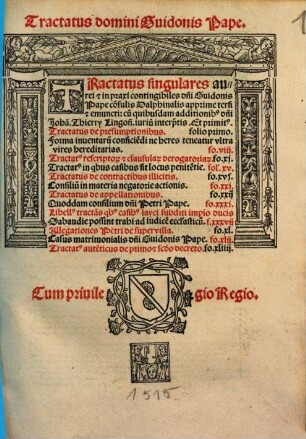 Tractatus domini Guidonis Pape.
TRactatus singulares au-
rei & in praxi contingibiles dñi Guidonis
Pape cõsulis Dalphinalis apprime tersi
& emuncti: cũ quibusdam additioni⁹ dñi
Johã. Thierry Lingoñ. iuriũ interptis. Et primus.
Tractatus de presumptionibus. folio primo.
Forma inuentarij conficiẽdi ne heres teneatur vltra
vires hereditarias. fo.viij.
Tractat⁹ rescriptorũ & clausularũ derogatoriarũ fo.xj.
Tractat⁹ in qbus casibus sit locus penitẽtie. fol. xv.
Tractatus de contractibus illicitis. fo.xvj.
Consiliũ in materia negatorie actionis. fo.xxj.
Tractatus de appellationibus. fo.xxij
Quoddam consilium dñi Petri Pape. fo.xxxj.
Libell⁹ tractãs qb⁹ casib⁹ laici subditi impio ducis
Sabaudie possint trahi ad iudicẽ ecclesiasticũ. f.xxxvij
Allegationes Petri de supervilla. fo.xl.
Casus matrimonialis dñi Guidonis Pape. fo.xlij.
Tractat⁹ autẽticus de primo & scḋo decreto. fo.xliij.
Cum priuile gio Regio.
1515